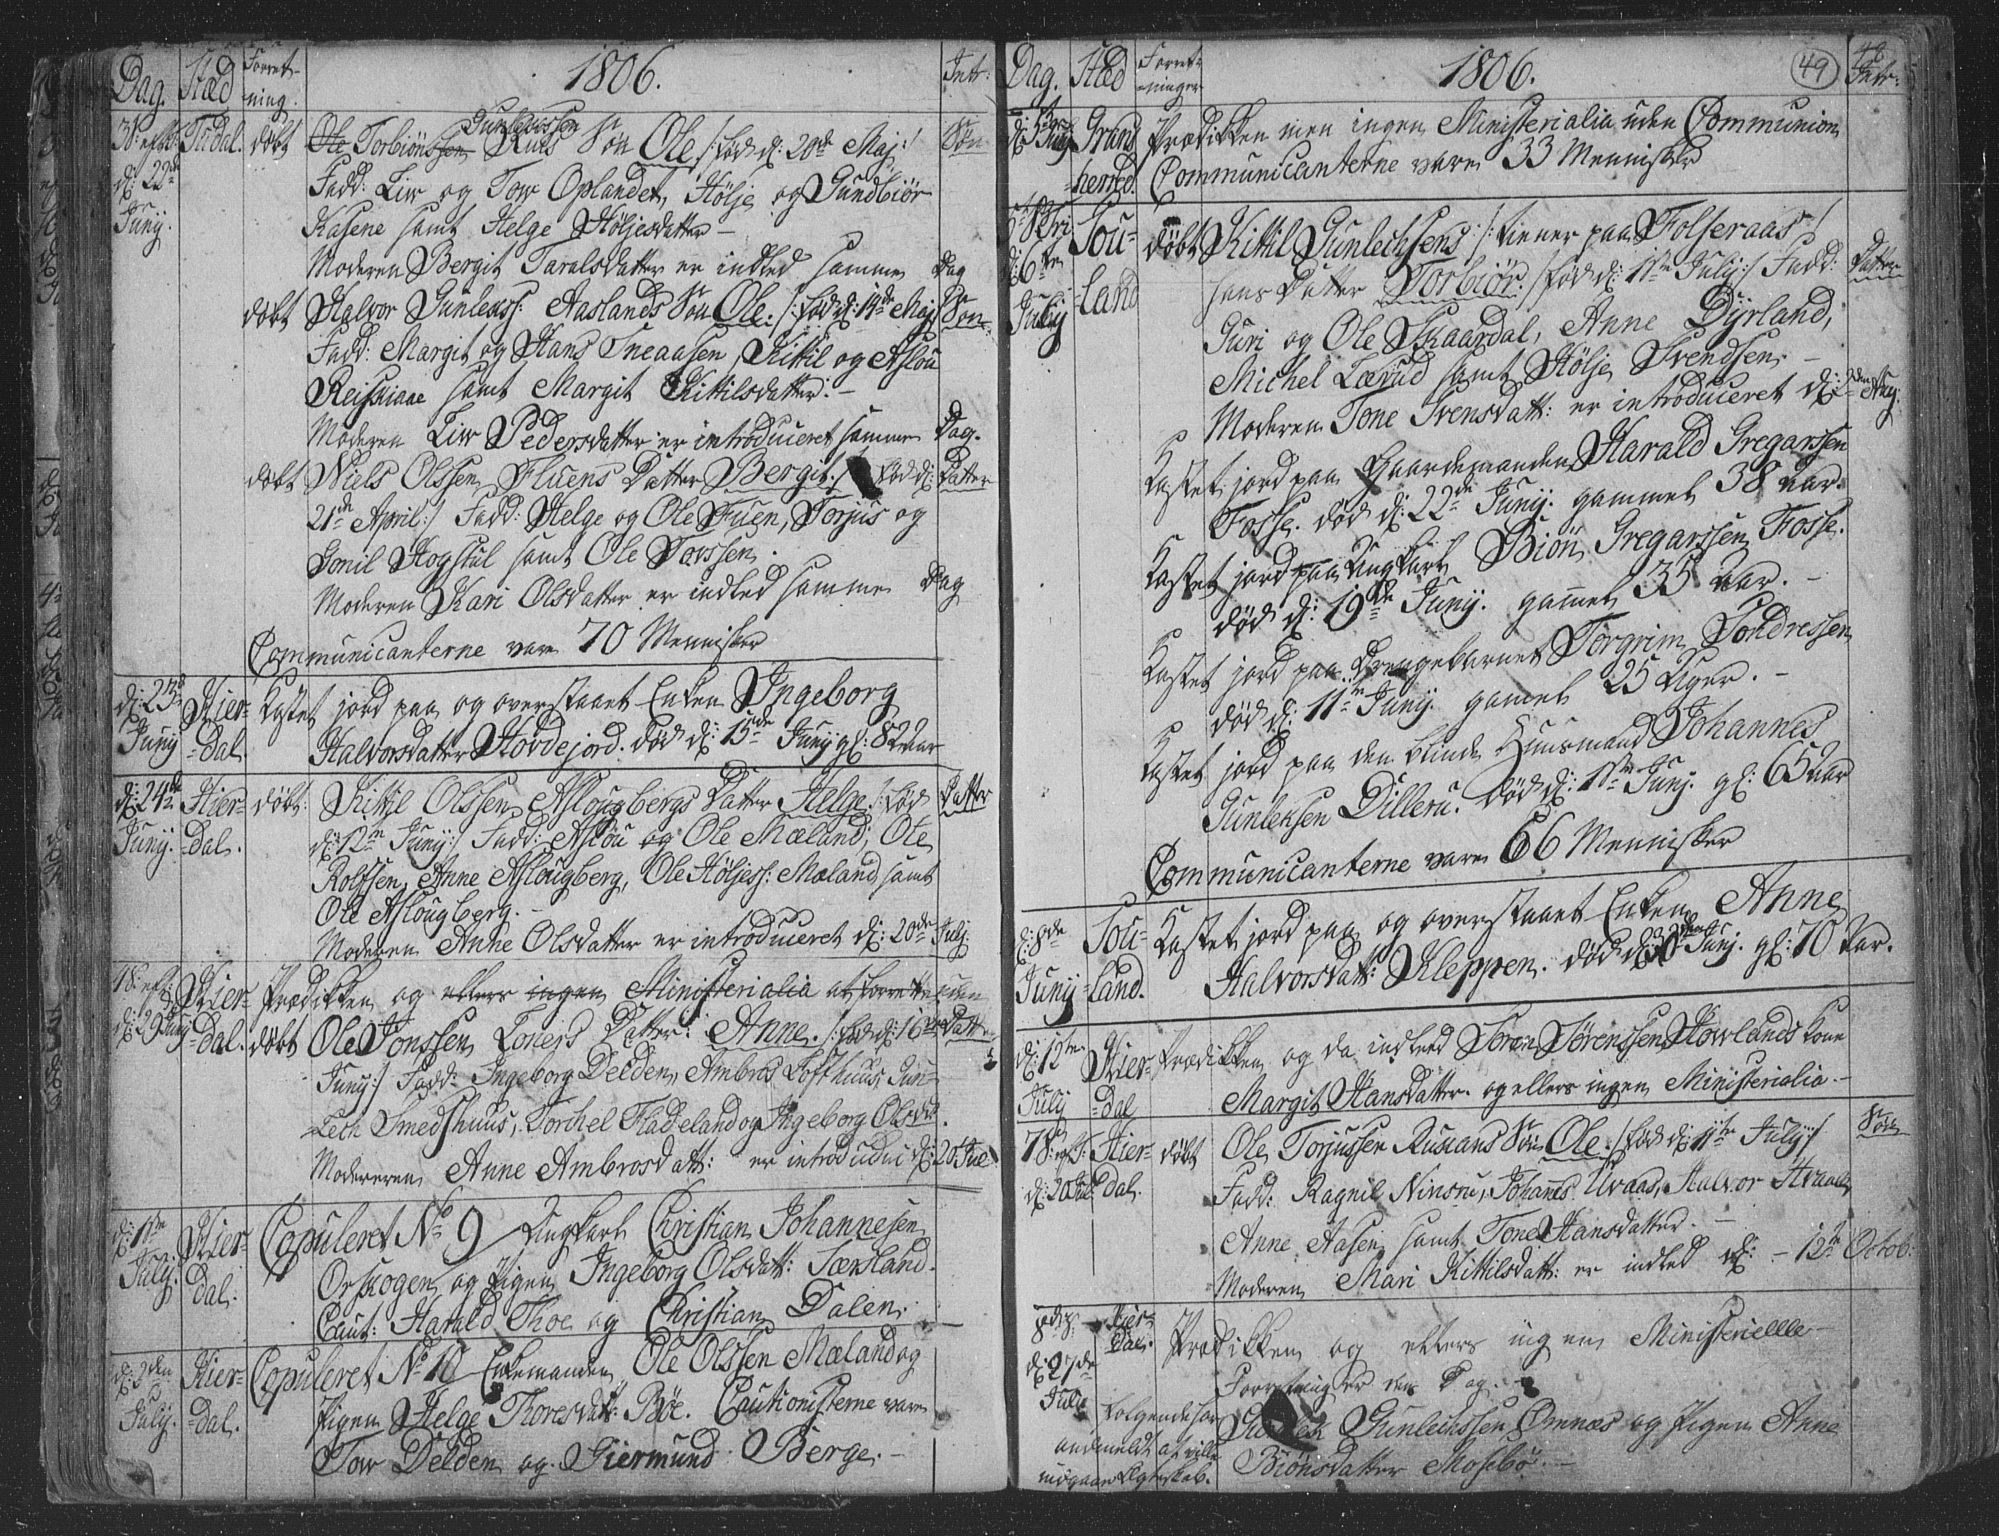 Dag. Stæd Forret-ning. 1806. Intr:
3 S: eft: d: 22de Juny. Todal. døbt Ole Torbiønssen Gunleussen Ruis Søn Ole /: fød d: 20de Maj :/ Søn
Fadd: Liw og Tow Oplandet, Hølje og Gundbiør
Kasene samt Helge Høljesdatter –
Moderen Bergit Taralsdatter er indled samme Dag
døbt Halvor Gunleuss: Aaslands Søn Ole. /: fød d: 14de Maj Søn.
Fadd: Margit og Hans Sneaasen, Kittil og Aslou
Reiskiaae samt Margit Kittilsdatter. –
Moderen Liw Pedersdatter er introduceret samme Dag.
døbt Niels Olssen Fluens Datter Bergit. /: fød d: Datter
21de April :/ Fadd: Helge og Ole Fuen, Torjus og
Gonil Hogstul samt Ole Torssen.
Moderen Kari Olsdatter er indled samme Dag
Communicanterne vare 70 Mennisker
d: 23de Juny Hier-dal. Kastet jord paa og overstaaet Enken Ingeborg
Halvorsdatter Hovdejord. død d: 15de Juny gl: 82 Aar
d: 24de Juny. Hier-dal. døbt: Kittil Olssen Aslougbergs Datter Helge /: fød Datter
d: 12te Juny :/ Fadd: Aslou og Ole Mæland, Ole
Rolfsen, Anne Aslougberg, Ole Høljess: Mæland samt
Ole Aslougberg. –
Moderen Anne Olsdatter er introduceret d: 20de Julj.
4 S: eft: d: 29 Juny Hier-dal. Prædikken og ellers ingen Ministerialia at forrette uden
døbt Ole Jonssen Loners Datter: Anne. /: fød d: 16de Datt:
Juny :/ Fadd: Ingeborg Delden, Ambros Lofthuus, Gun-
lech Smedshuus, Torchel Fladeland og Ingeborg Olsdtt.
Modereren Anne Ambrosdatt: er introducu d: 20 Jul
d: 1te July. Hier-dal. Copuleret No 9 Ungkarl Christian Johannesen
Orskogen og Pigen Ingeborg Olsdatt: Særsland.
Caut: Harald Thoe og Christian Dalen.
d: 3den July. Hier-dal. Copuleret No 10 Enkemanden Ole Olssen Mæland og
Pigen Helge Thoresdatt: Bøe. Cautionisterne vare
Tow Delden og Giermund Berge. –
Dag. Stæd Forret-ninger 1806. 49 48 Intr:
Grans-herred. Prædikken men ingen Ministerialia uden Communion
Communicanterne vare 33 Mennisker
5 S: Tri d: 6te July Sou-land døbt Kittil Gunlechsens /: tiener paa Folseraas :/
hans Datter Torbiør. /: fød d: 1te July :/ Fadd: Datter
Guri og Ole Skaardal, Anne Dyrland,
Michel Lærud samt Hølje Svendsen. –
Moderen Tone Svensdatt: er introduceret d: Aug:
Kastet jord paa Gaardemanden Harald Gregarssen
Fosse. død d: 22de Junij. gammel 38 Aar.
Kastet jord paa Ungkarl Biøn Gregarssen Fosse.
død d: 19de Junij. gamel 35 Aar. –
Kastet jord paa Drengebarnet Torgrim Tondressen
død d: 11te Junij gamel 25 Uger. –
Kastet jord paa den blinde Huusmand Johannes
Gunleksen Dilleru. død d: Junij. gl: 65 Aar
Communicanterne vare 66 Mennisker
d: 8de Juny Sou-land. Kastet jord paa og overstaaet Enken Anne
Halvorsdatt: Kleppen. død d: Junij. gl: 70 Aar.
d: 12te July Hier-dal Prædikken og da indled Søren Sørenssen Howlands Kone
Margit Hansdatter og ellers ingen Ministerialia. –
7 S: eft: d: 20 Jul Hier-dal. døbt Ole Torjussen Rusians Søn Ole. /: fød d: 11te July :/ Søn
Fadd: Ragnil Ninsru, Johannes Uvaas, Halvor Hvaale
Anne Aasen samt Tone Hansdatter. –
Moderen Mari Kittilsdatt: er indled d: – 12te Octob:
8de S: d: 27de Julii Hier-Dal. Prædikken og ellers ingen Ministerielle
Forretninger den Dag. –
Følgende har anmeldt at ville indgaae Ægteskab. Gunlechssen Omnæs og Pigen Anne
Biønsdatter Mosebø. –